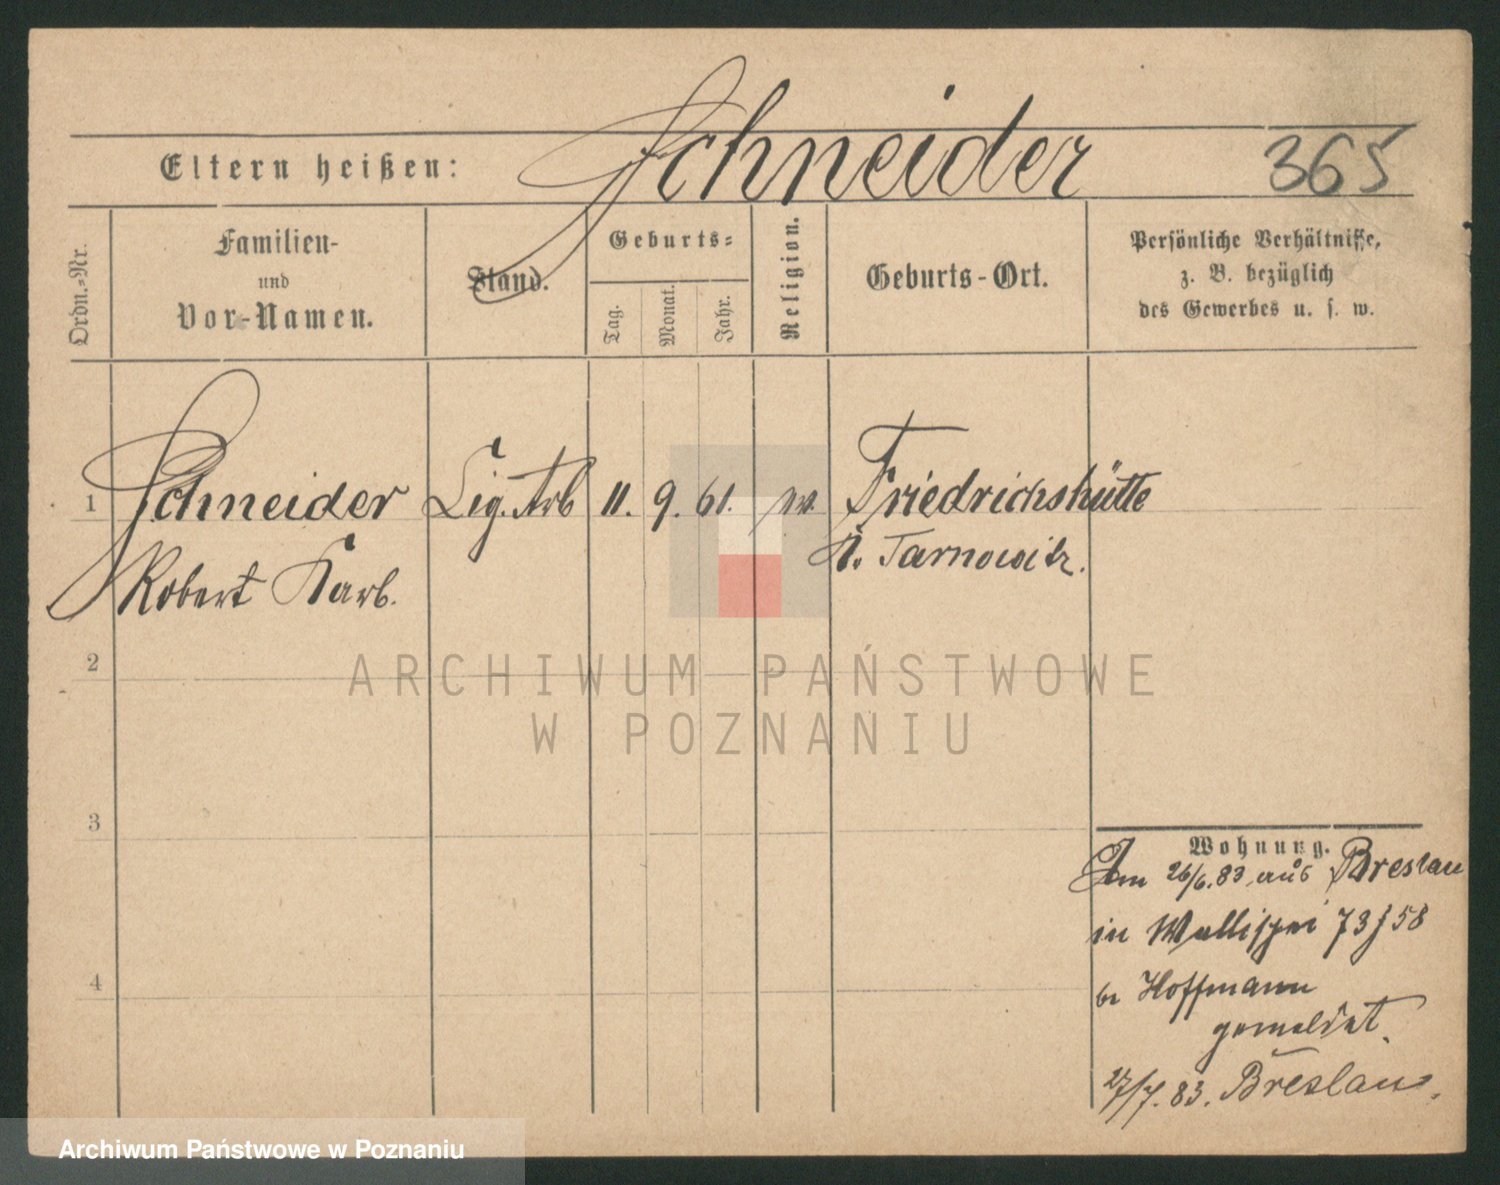 Schneider
Eltern heißen:
365
Ordn.-Nr.
Familien-
und
Vor-Namen.
Stand.
Geburts-
Tag.
Monat.
Jahr.
Religion.
Geburts-Ort.
Persönliche Verhältnisse,
z. B. bezüglich
des Gewerbes u. s. w.
1 Schneider Cig. Arb 11. 9. 61. Friedrichshütte
Robert Karl. Tarnowitz.
2
3
4
Wohnung.
Am 26/6. 83 aus Breslau
in Wallischei 73 58
br Hoffmann
gemeldet.
27/7. 83. Breslau.
ARCHIWUM PAŃSTWOWE
W POZNANIU
Archiwum Państwowe w Poznaniu